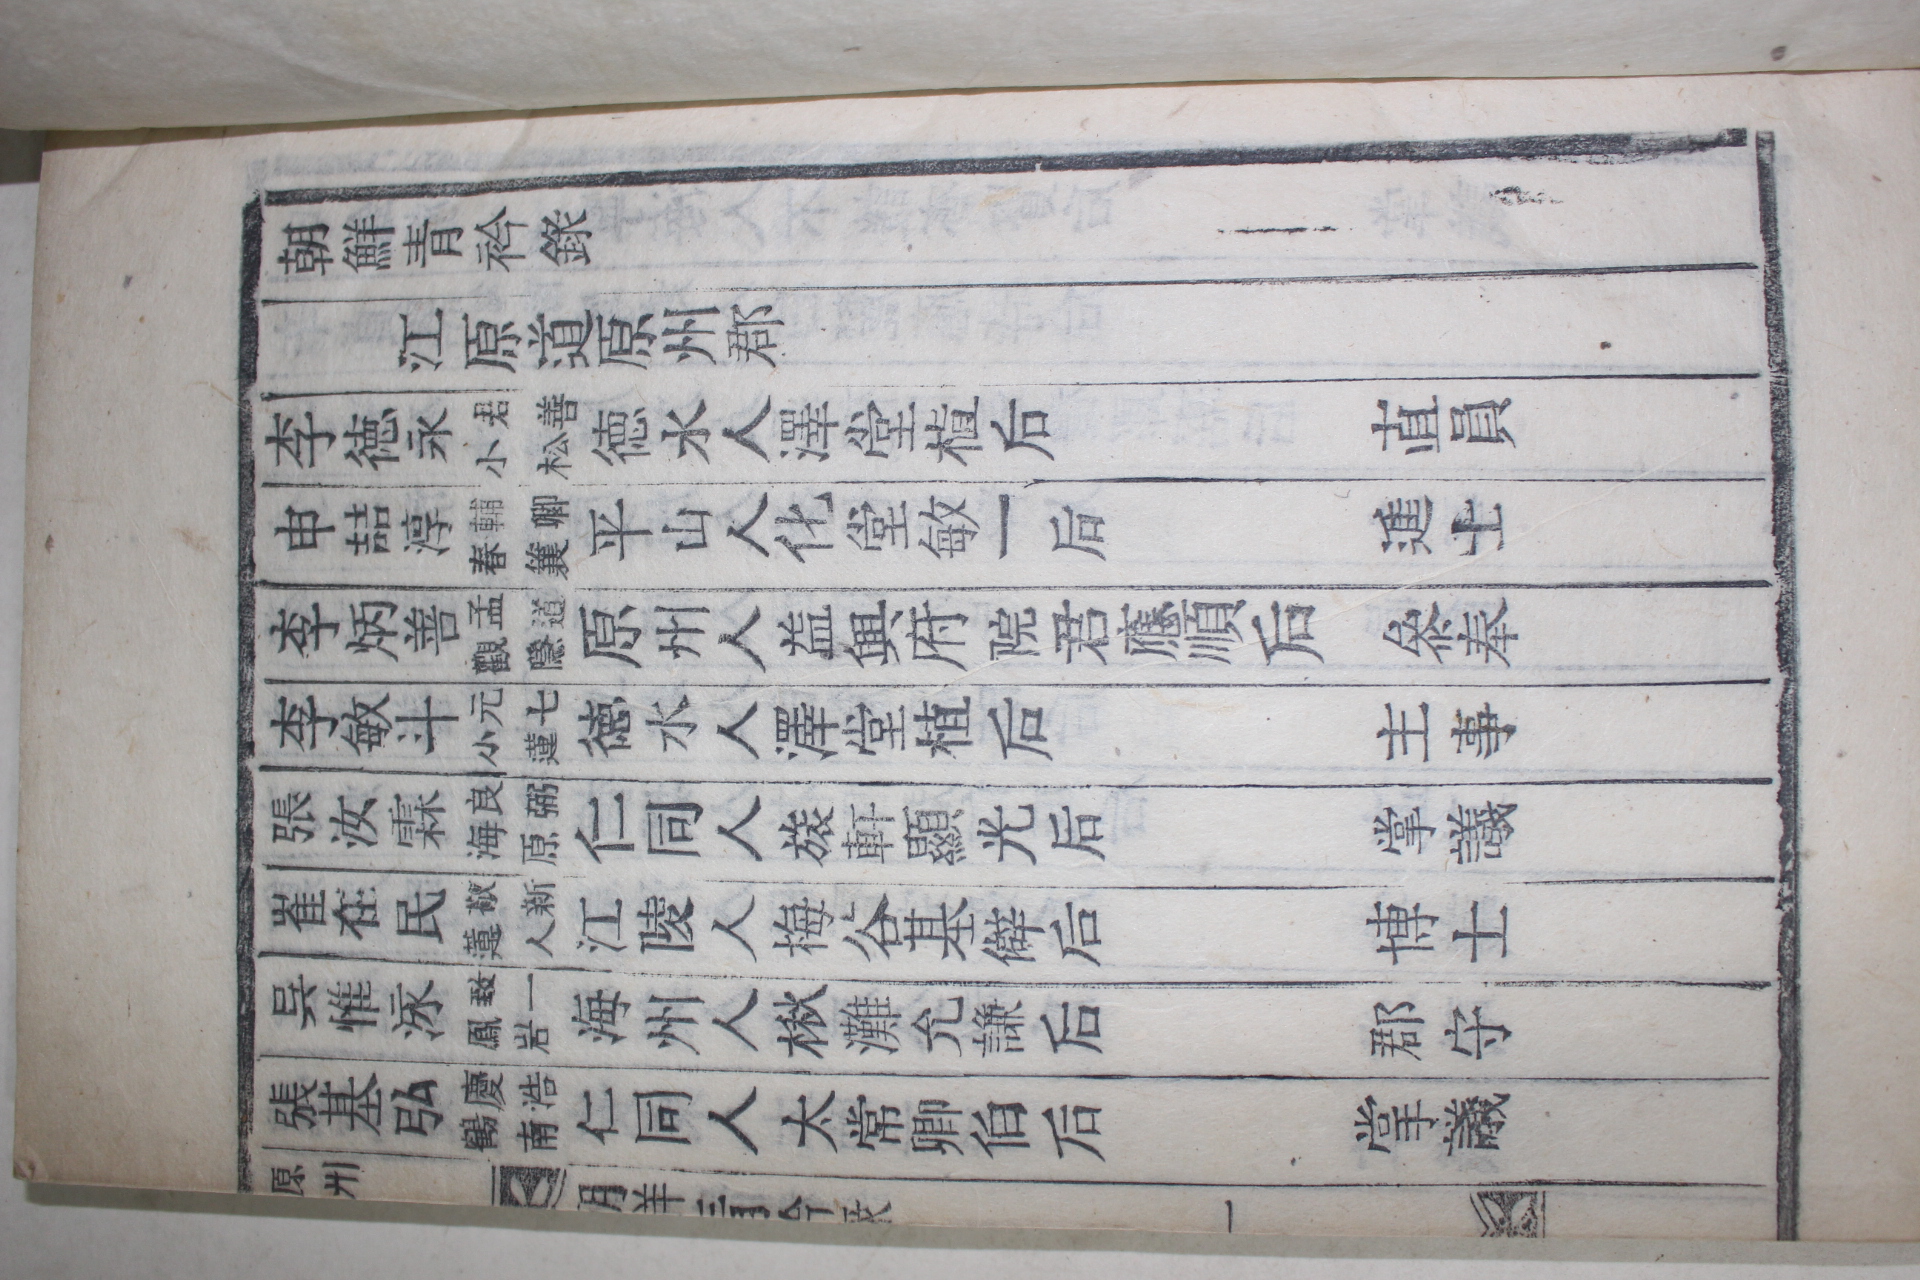 朝鮮青衿錄
江原道原州郡
李德永 君善 小松 德水人澤堂植后 直員
申喆淳 輔卿 春簑 平山人化堂敏一后 進士
李炳善 孟道 觀隱 原州人益興府院君應順后 參奉
李敏斗 元七 小蓮 德水人澤堂植后 主事
張汝霖 良弼 海原 仁同人旅軒顯光后 掌議
崔在民 敬新 蕙人 江陵人梅谷基僻后 博士
吳惟泳 致一 鳳岩 海州人楸灘允謙后 郡守
張基弘 慶浩 鶴南 仁同人太常卿伯后 掌議
原州 朝鮮青衿錄 一